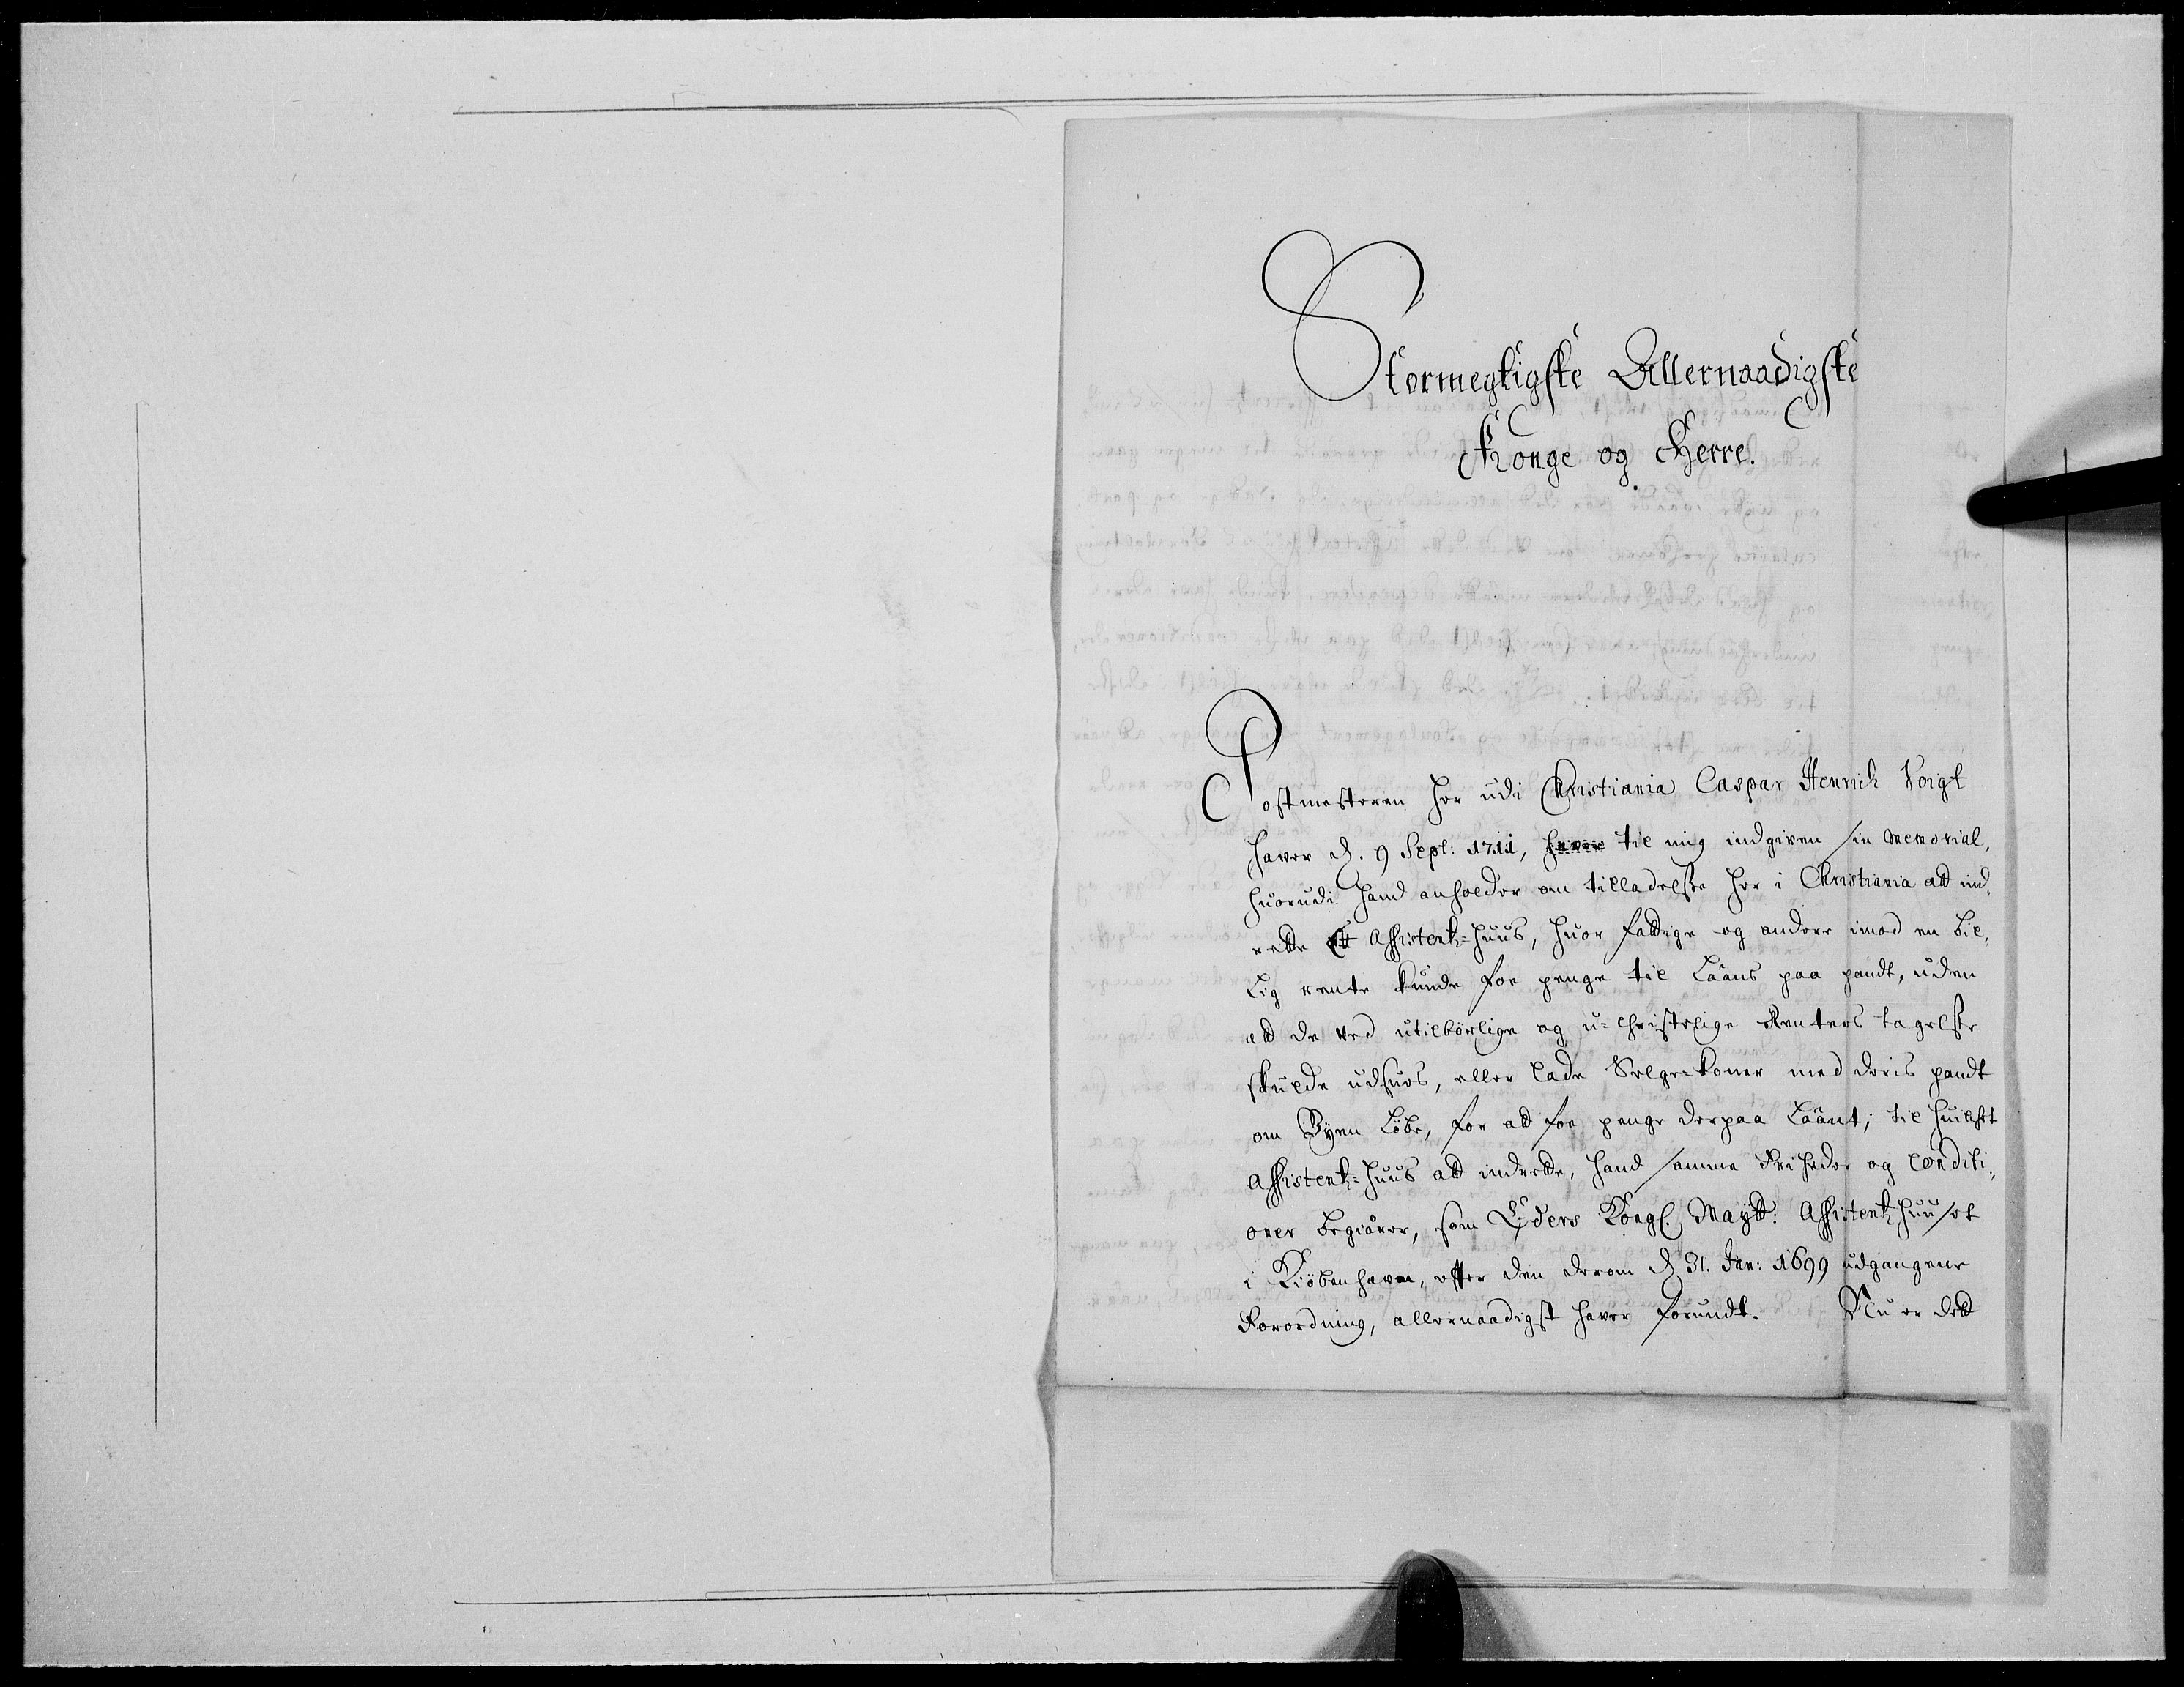 Stormegtigste Allernaadigste
Konge og Herre.
Postmesteren her udi Christiania Caspar Henrich Voigt
haver d. 9 Sept: 1711, haver til mig indgiven sin Memorial,
huorudi hand anholder om tilladelsse her i Christiania att ind¬
rette Et Assistentz-huus, huor fattige og andere imod en bil¬
lig rente kunde foe penge til Laans paa pandt, uden
att de ved utilbörlige og u-christelige Renters tagelsse
skulde udsues, eller lade Selge-koner med deris pandt
om Byen Löbe, for att foe penge derpaa Laant; til huilket
Assistentz-huus att indrette, hand samme Friheder og Conditi¬
oner begiærer, som Eders Kongl. Mayt: Assistentz huuset
i Kiöbenhavn, effter den derom d. 31. Jan: 1699 udgangene
Forordning, allernaadigst haver forundt. Nu er dett